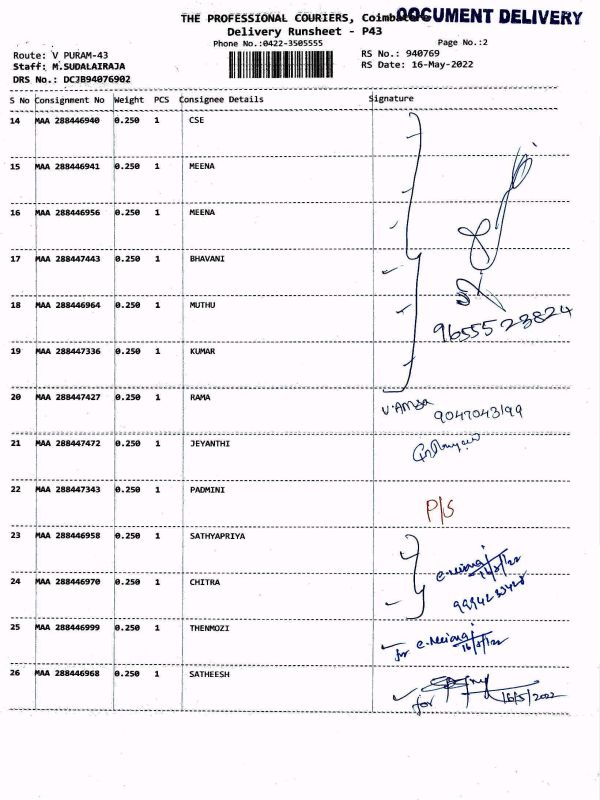 THE PROFESSIONAL COURIERS, Coimbatore
DOCUMENT DELIVERY
Delivery Runsheet - P43
Phone No.:0422-3505555
Page No.:2
Route: V PURAM-43
RS No.: 940769
Staff: M.SUDALAIRAJA
RS Date: 16-May-2022
DRS No.: DCJB94076902
S No Consignment No Weight PCS Consignee Details Signature
14 MAA 288446940 0.250 1 CSE
15 MAA 288446941 0.250 1 MEENA
16 MAA 288446956 0.250 1 MEENA
17 MAA 288447443 0.250 1 BHAVANI
18 MAA 288446964 0.250 1 MUTHU
9655523824
19 MAA 288447336 0.250 1 KUMAR
20 MAA 288447427 0.250 1 RAMA V.Amsa 9047043199
21 MAA 288447472 0.250 1 JEYANTHI
22 MAA 288447343 0.250 1 PADMINI P/S
23 MAA 288446958 0.250 1 SATHYAPRIYA
24 MAA 288446970 0.250 1 CHITRA
25 MAA 288446999 0.250 1 THENMOZI for
26 MAA 288446968 0.250 1 SATHEESH for 16/5/2022